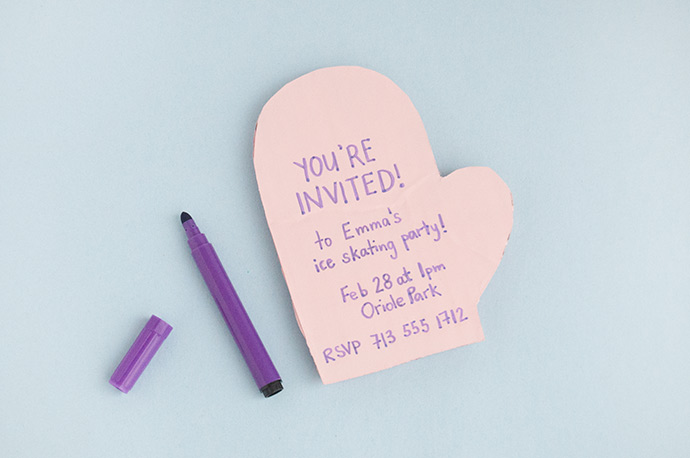 YOU'RE
INVITED!
to Emma's
ice skating party!
Feb 28 at 1pm
Oriole Park
RSVP 713 555 1712